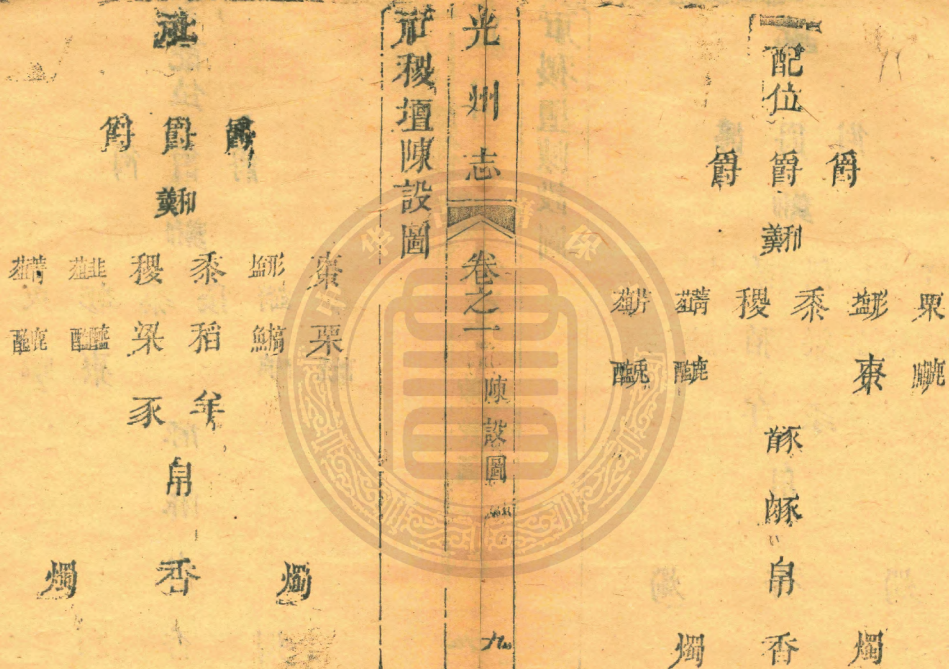 配位
爵 爵 爵
和羹
栗 形鹽 黍 稷 菁葅 芹葅
鹿脯 棗 鹿醢 兔醢
豕首
帛
燭 香 燭
光州志 卷之一 陳設圖 九
社稷壇陳設圖
社
爵 爵 爵
和羹
棗 形鹽 黍 稷 韭葅 菁葅
栗 藁魚 稻 粱 醓醢 鹿醢
羊 豕
帛
燭 香 燭